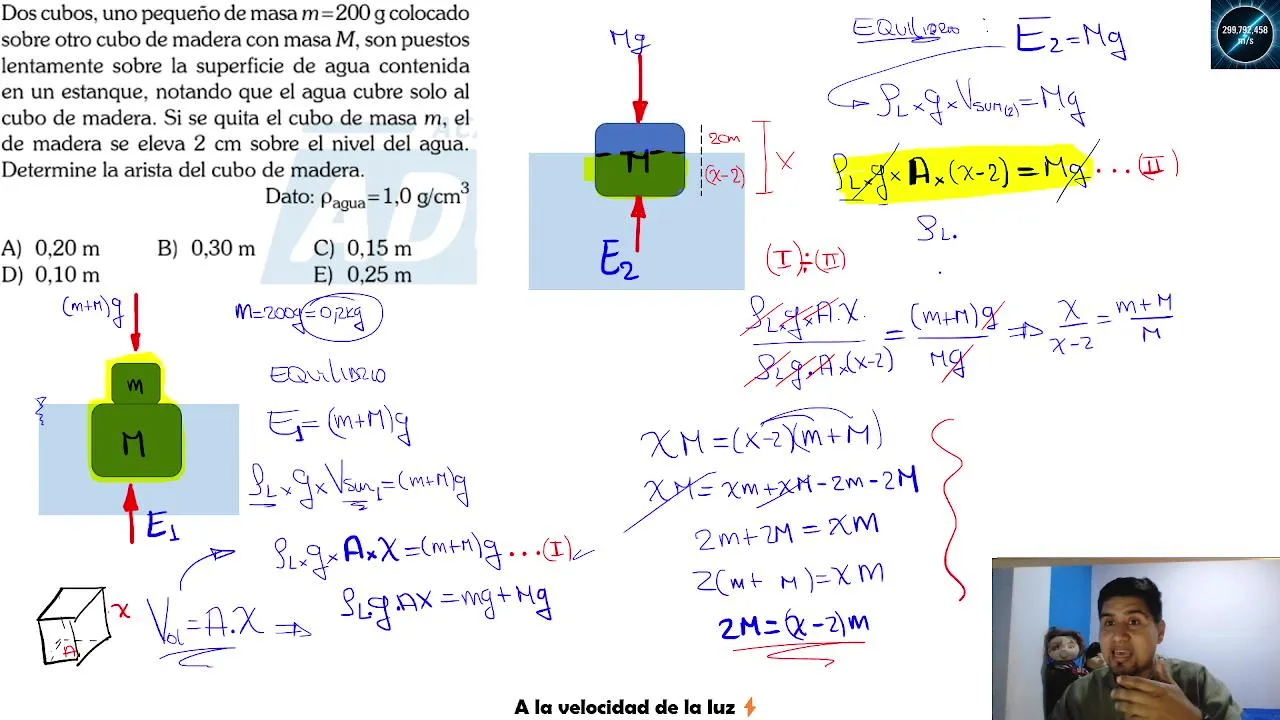 Dos cubos, uno pequeño de masa m=200 g colocado
sobre otro cubo de madera con masa M, son puestos
lentamente sobre la superficie de agua contenida
en un estanque, notando que el agua cubre solo al
cubo de madera. Si se quita el cubo de masa m, el
de madera se eleva 2 cm sobre el nivel del agua.
Determine la arista del cubo de madera.
Dato: ρagua=1,0 g/cm³
A) 0,20 m B) 0,30 m C) 0,15 m
D) 0,10 m E) 0,25 m
(m+M)g
m=200g=0,2kg
m
M
E₁
EQUILIBRIO
E₁=(m+M)g
ρL×g×Vsum₁=(m+M)g
ρL×g×A×x=(m+M)g ...(I)
ρL.g.Ax=mg+Mg
x
A
Vol=A.x ⇒
Mg
M
2cm
(x-2)
x
E₂
EQUILIBRIO : E₂=Mg
ρL×g×Vsum(2)=Mg
ρL×g×A×(x-2)=Mg ...(II)
ρL.
(I)÷(II)
ρL×g×A.x / ρL.g.A×(x-2) = (m+M)g / Mg ⇒ x/x-2 = m+M/M
xM=(x-2)(m+M)
xM=xm+xM-2m-2M
2m+2M=xm
2(m+M)=xm
2M=(x-2)m
299,792,458
m/s
A la velocidad de la luz⚡